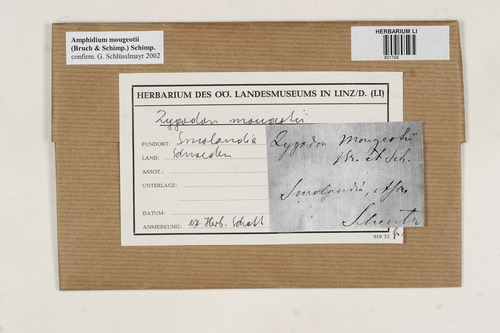 Amphidium mougeotii
(Bruch & Schimp.) Schimp.
confirm. G. Schlüsslmayr 2002
HERBARIUM LI
801768
HERBARIUM DES OÖ. LANDESMUSEUMS IN LINZ/D. (LI)
Zygodon mougeotii
FUNDORT: Smolandia
LAND: Schweden
ASSOZ.:
UNTERLAGE:
DATUM:
ANMERKUNG: ex Herb.
Zygodon Mougeotii
Br. et Sch.
Smolandia,
919 73